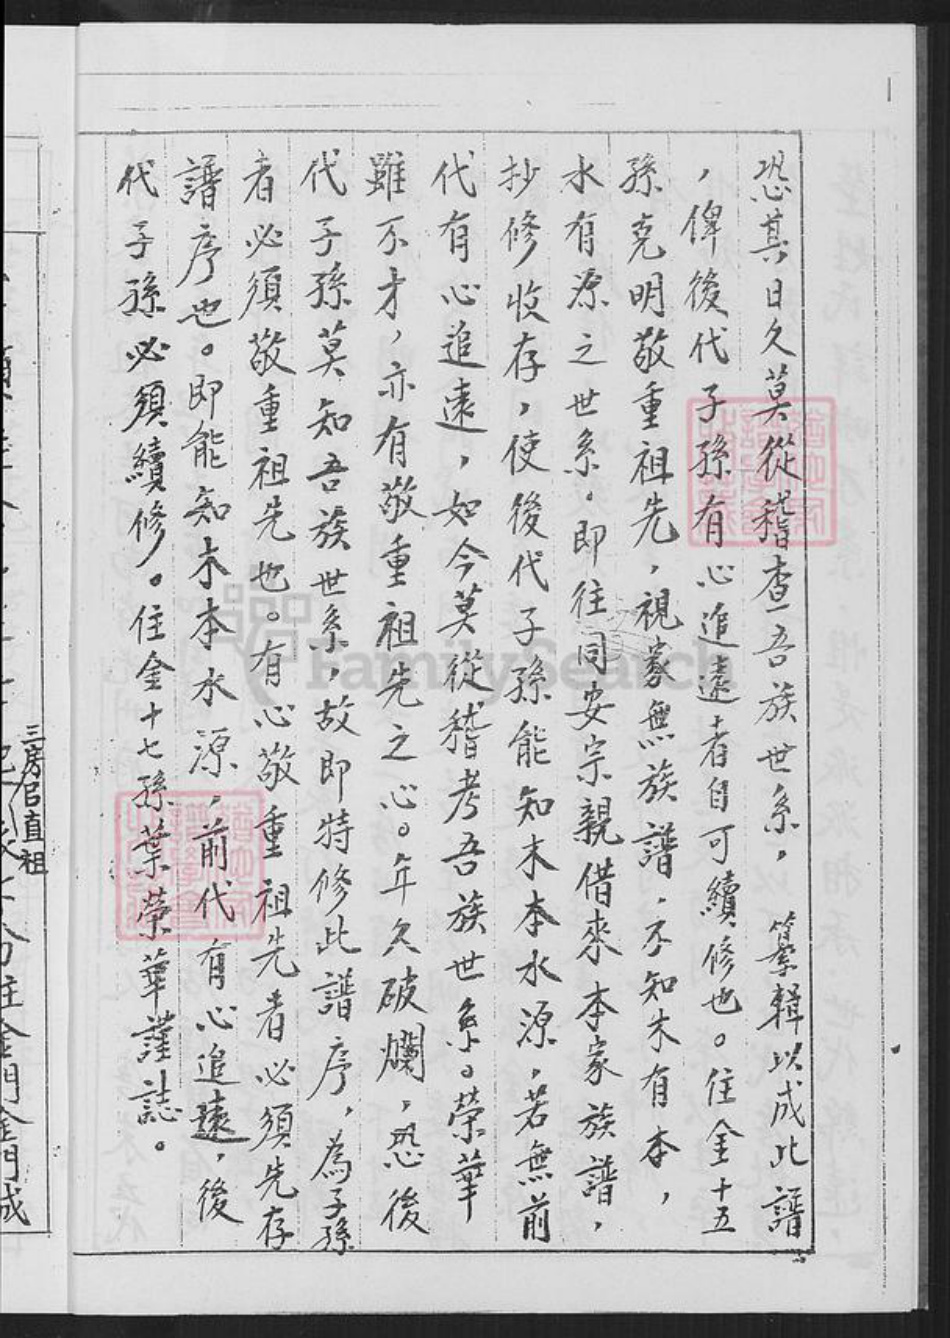 恐其日久莫從稽查吾族世系，纂輯以成此譜
，俾後代子孫有心追遠者自可續修也。住金十五
孫克明敬重祖先，視家無族譜，不知木有本，
水有源之世系。即往同安宗親借來本家族譜，
抄修收存，使後代子孫能知木本水源，若無前
代有心追遠，如今莫從稽考吾族世系。榮華
雖不才，亦有敬重祖先之心。年久破爛，恐後
代子孫莫知吾族世系，故即特修此譜序，為子孫
者必須敬重祖先也。有心敬重祖先者必須先存
譜序也。即能知木本水源，前代有心追遠，後
代子孫必須續修。住金十七孫葉榮華謹誌。
三房官直祖
分住金門金門城
FamilySearch